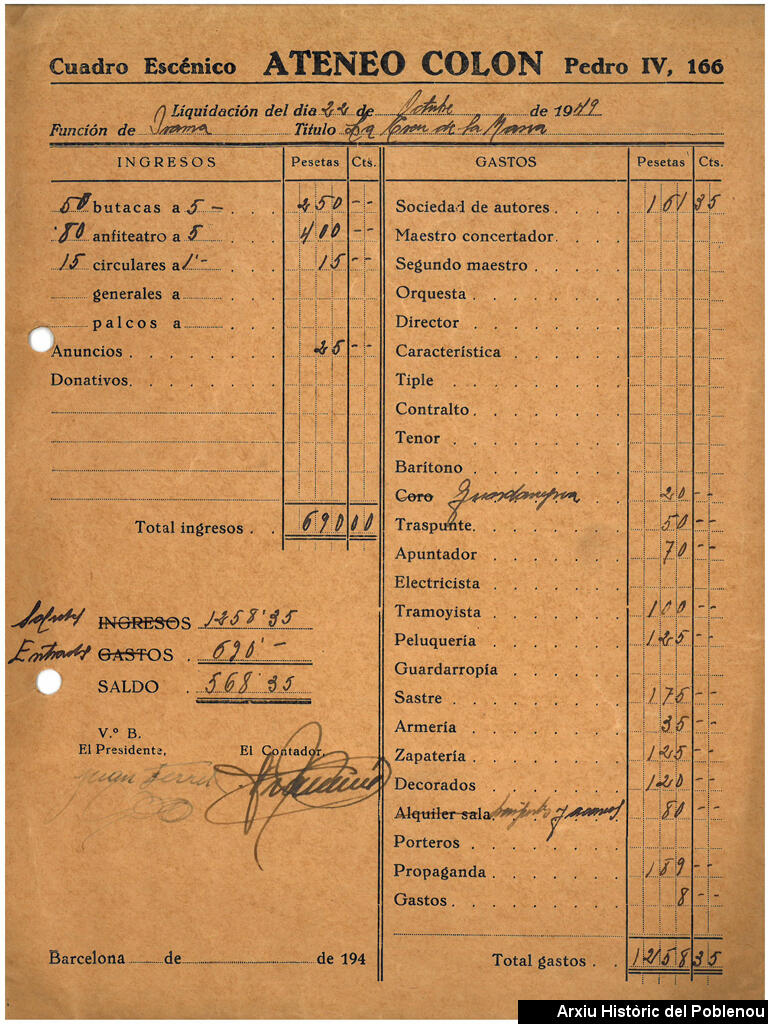 Cuadro Escénico ATENEO COLON Pedro IV, 166
Liquidación del dia 22 de Octubre de 1949
Función de Drama Título La Creu de la Masia
INGRESOS Pesetas Cts.
50 butacas a 5 - 250 --
80 anfiteatro a 5 400 --
15 circulares a 1'- 15 --
generales a
palcos a
Anuncios 25 --
Donativos
Total ingresos 690 00
Salidas INGRESOS 1258'35
Entradas GASTOS 690'-
SALDO 568'35
V.º B.
El Presidente, El Contador,
Juan Ferrer
Barcelona de de 194
GASTOS Pesetas Cts.
Sociedad de autores 161 35
Maestro concertador
Segundo maestro
Orquesta
Director
Característica
Tiple
Contralto
Tenor
Barítono
Coro 20 --
Traspunte 50 --
Apuntador 70 --
Electricista
Tramoyista 100 --
Peluquería 125 --
Guardarropía
Sastre 175 --
Armería 35 --
Zapatería 125 --
Decorados 120 --
Alquiler sala 80 --
Porteros
Propaganda 189 --
Gastos 8 --
Total gastos 1258 35
Arxiu Històric del Poblenou